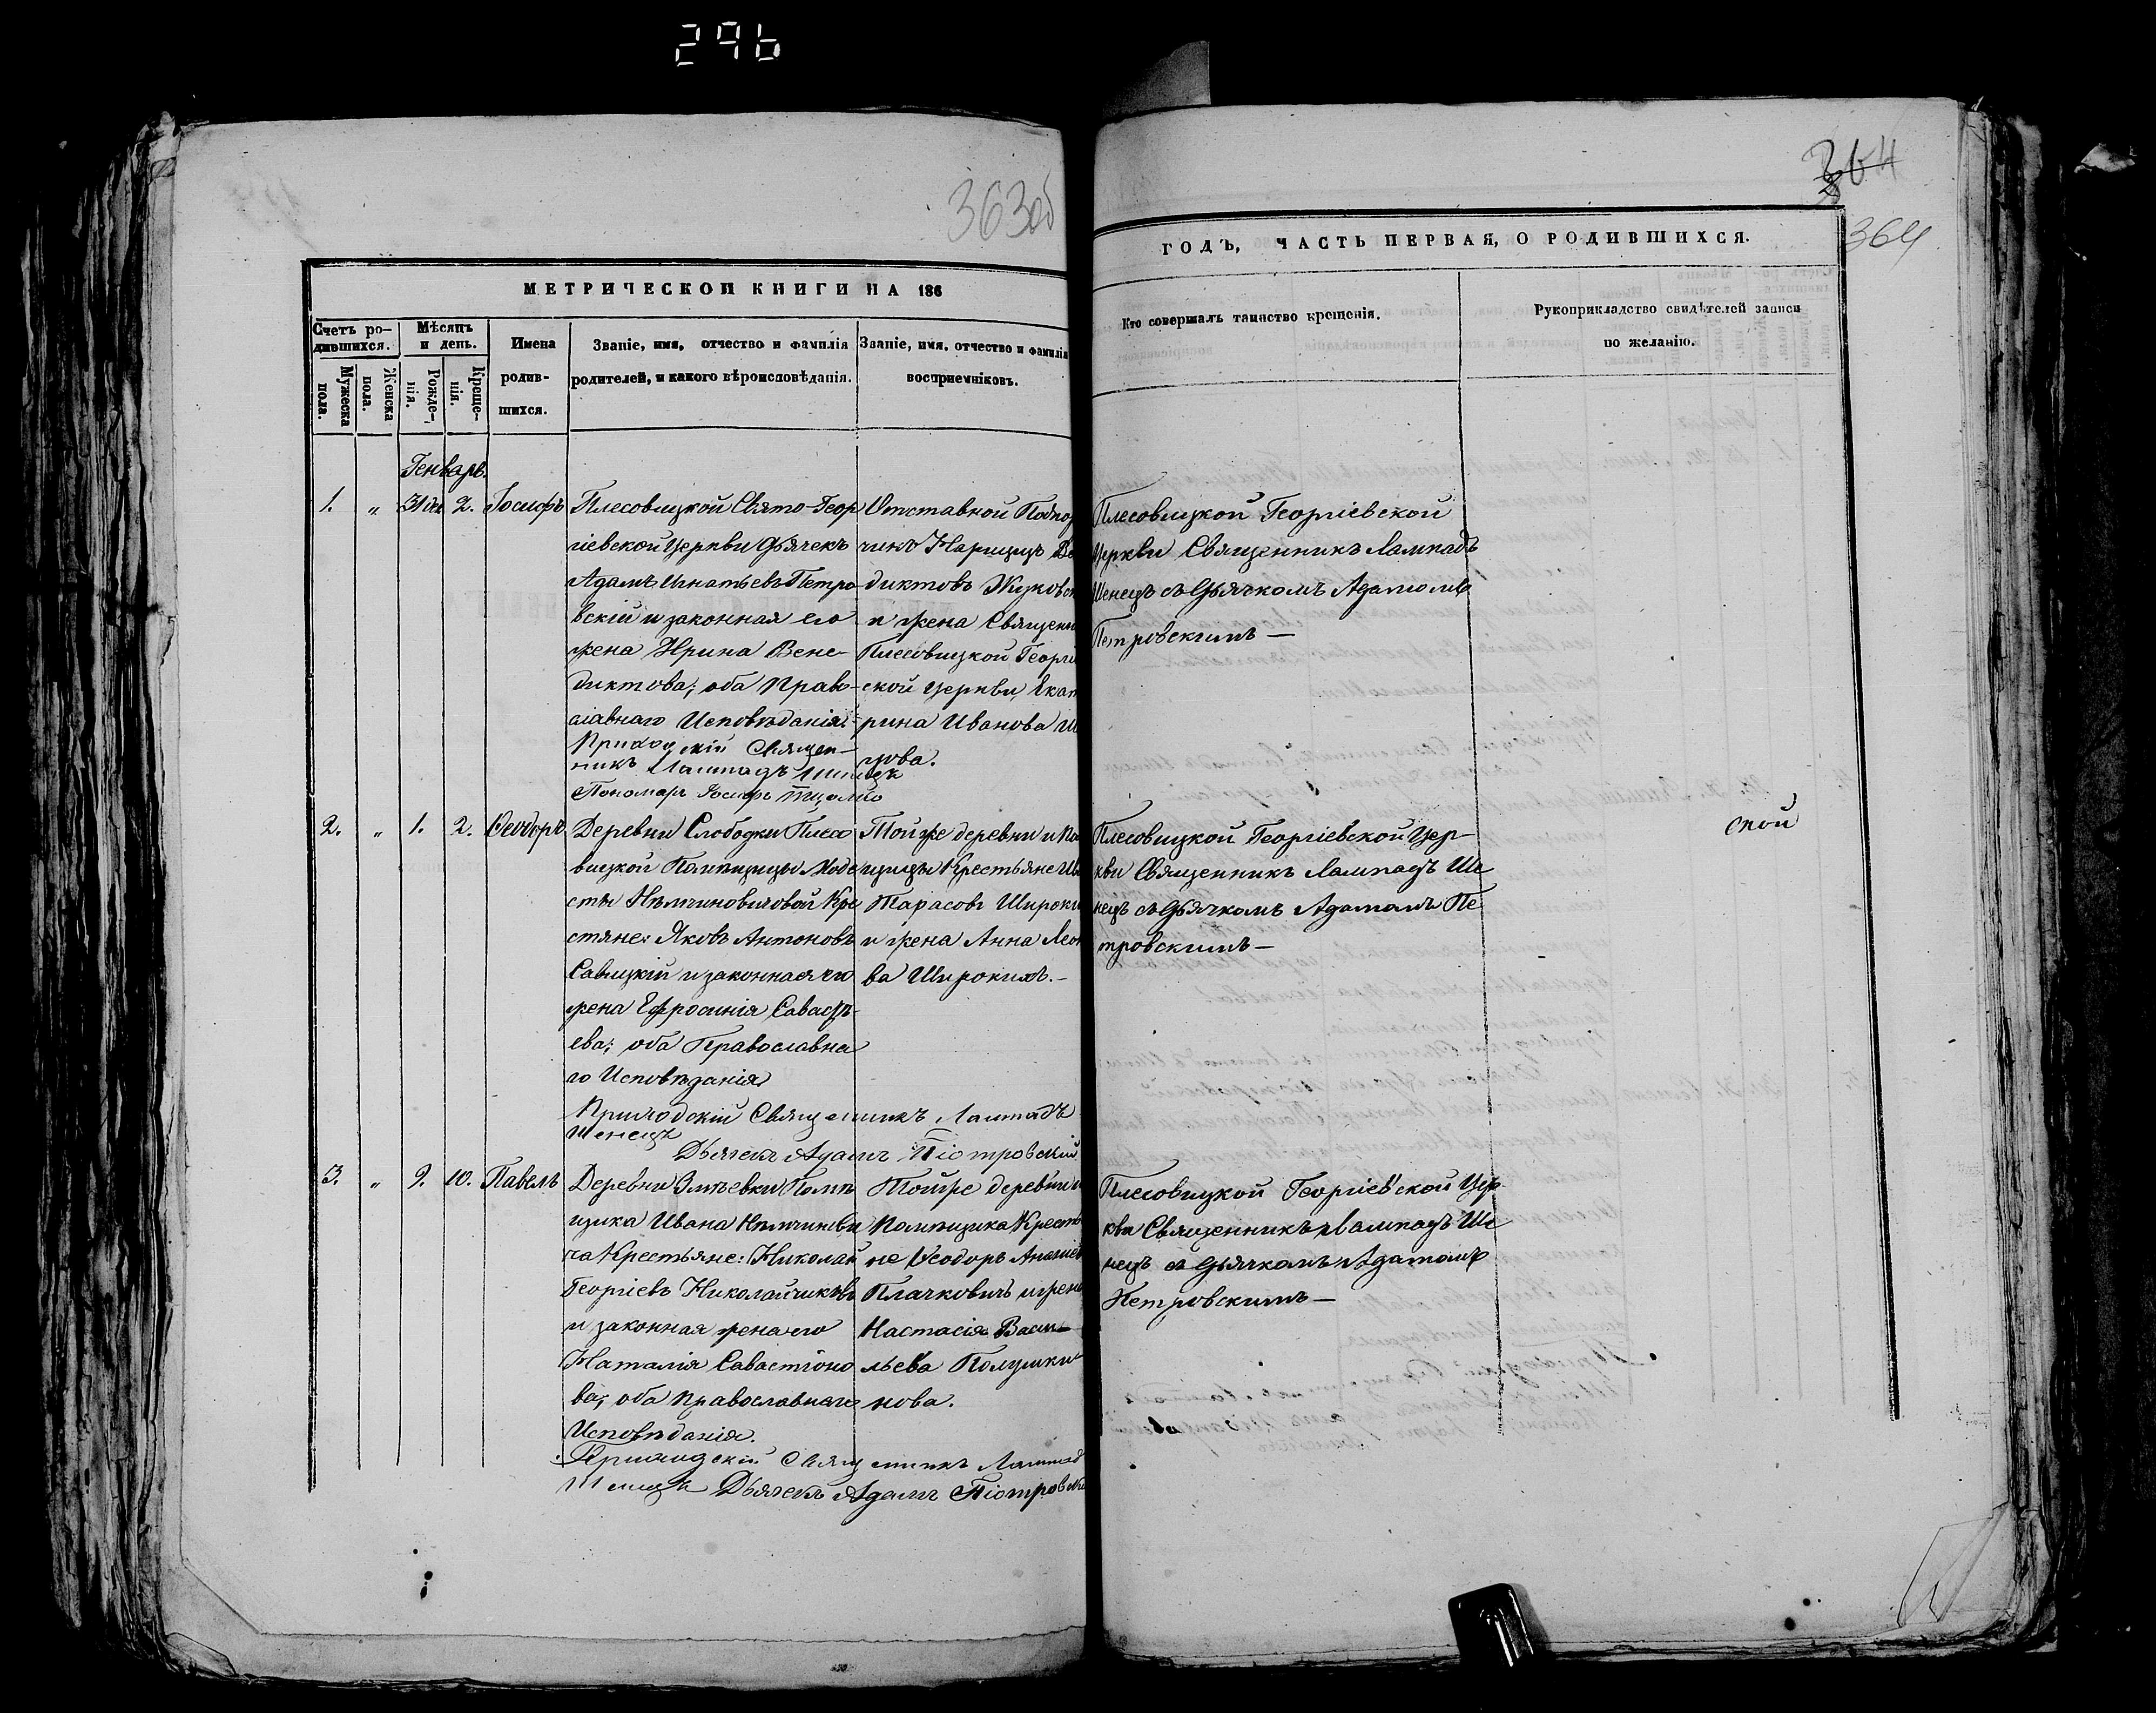 296
363об
364
364
МЕТРИЧЕСКОЙ КНИГИ НА 186
ГОДЪ, ЧАСТЬ ПЕРВАЯ, О РОДИВШИХСЯ.
Счетъ ро-
дившихся.
Мужеска пола.
Женска пола.
Мѣсяцъ
и день.
Рожде-
нія.
Креще-
нія.
Имена
родив-
шихся.
Званіе, имя, отчество и фамилія
родителей, и какого вѣроисповѣданія.
Званіе, имя, отчество и фамилія
воспріемниковъ.
Кто совершалъ таинство крещенія.
Рукоприкладство свидѣтелей записи
по желанію.
Генварь.
1. " 31 2. Іосифъ
Плесовицкой Свято-Геор
гіевской Церкви Дьячекъ
Адамъ Игнатьевъ Петро-
вскій и законная его
жена Ирина Вене-
диктова; оба Право-
славнаго Исповѣданія.
Приходскій Священ-
никъ Лампадъ Шенецъ
Пономарь Іосифъ
Отставной Подпор
чикъ
диктовъ Жуковск
и жена Священн
Плесовицкой Георгі
ской церкви Екат
рина Иванова Ше
цова.
Плесовицкой Георгіевской
Церкви Священникъ Лампадъ
Шенецъ съ Дьячкомъ Адамомъ
Петровскимъ —
2. " 1. 2. Ѳеодоръ
Деревни Слободки Плесо
вицкой Помѣщицы Моде
сты Нѣмчиновичовой Кре
стяне: Яковъ Антоновъ
Савицкій и законная его
жена Ефросинія Савастѣ-
ева; оба Православна
го Исповѣданія
Приходскій Священникъ Лампадъ
Шенецъ
Дьячекъ Адамъ Піотровскій
Той же деревни и По
щицы Крестьяне
Тарасовъ Широки
и жена Анна Леон
ва Широкихъ. —
Плесовицкой Георгіевской Цер-
кви Священникъ Лампадъ Ше
нецъ съ Дьячкомъ Адамомъ Пе
тровскимъ —
ской
3. " 9. 10. Павелъ
Деревни Змѣевки Помѣ
щика Ивана Нѣмчинови
ча Крестьяне: Николай
Георгіевъ Николайчиковъ
и законная жена его
Наталія Савастіоно
ва; оба Православнаго
Исповѣданія.
Приходскій Священникъ Лампад
Шенецъ Дьячекъ Адамъ Піотровскі
Той же деревни и
Помѣщика Кресть
не Ѳеодоръ
Плачковичъ и жена
Настасія Васи-
льева Полушки
нова.
Плесовицкой Георгіевской Цер
кви Священникъ Лампадъ Ше
нецъ съ Дьячкомъ Адамомъ
Петровскимъ —